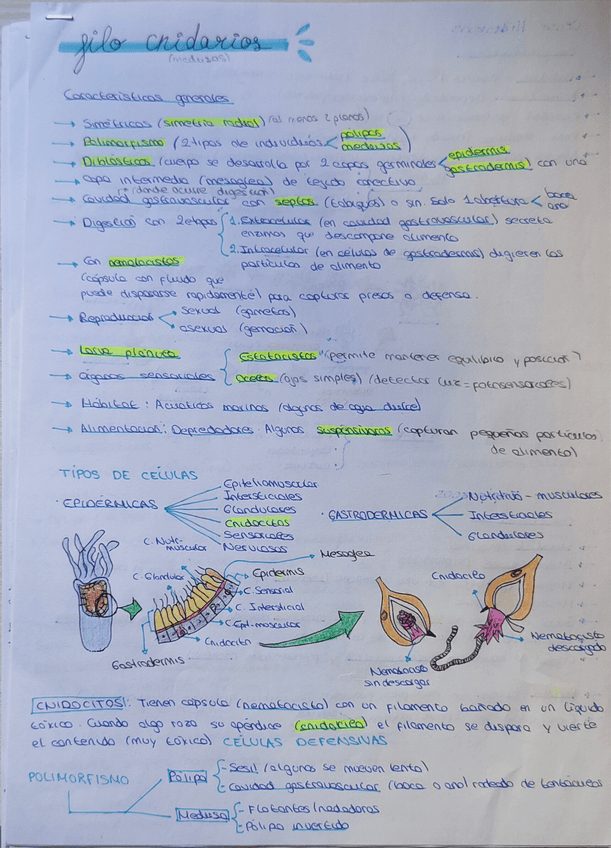 filo cnidarios
(medusas)
Características generales
→ Simétricos (simetría radial) (al menos 2 planos)
→ Polimorfismo (2 tipos de individuos < pólipos
medusas)
→ Diblásticos (cuerpo se desarrolla por 2 capas germinales < epidermis
gastrodermis) con una
capa intermedia (mesoglea) de tejido conectivo
(donde ocurre digestión)
→ Cavidad gastrovascular con septos (tabiques) o sin. Solo 1 abertura < boca
ano
→ Digestión con 2 etapas { 1. Extracelular (en cavidad gastrovascular) secreta
enzimas que descompone alimento
2. Intracelular (en células de gastrodermis) digieren las
partículas de alimento
→ Con nematocistos
(cápsula con fluido que
puede dispararse rapidamente) para capturar presas o defensa.
→ Reproducción < sexual (gametos)
asexual (gemación)
→ Larva plánula
→ Órganos sensoriales { Estatocistos (permite mantener equilibrio y posición)
Ocelos (ojos simples) (detectar luz = fotosensores)
→ Hábitat: Acuáticos marinos (algunos de agua dulce)
→ Alimentación: Depredadores. Algunos suspensívoros (capturan pequeñas partículas
de alimento)
TIPOS DE CÉLULAS
· EPIDÉRMICAS
Epiteliomuscular
Intersticiales
Glandulares
Cnidocitos
Sensoriales
Nerviosas
· GASTRODERMICAS
Nutritivas - musculares
Intersticiales
Glandulares
C. Nutri-
muscular
C. Glandular
Mesoglea
Epidermis
C. Sensorial
C. Intersticial
C. Epit-muscular
Cnidocito
Gastrodermis
Cnidocilo
Nematocisto
sin descargar
Nematocisto
descargado
CNIDOCITOS: Tienen cápsula (nematocisto) con un filamento bañado en un líquido
tóxico. Cuando algo roza su apéndice (cnidocilo) el filamento se dispara y vierte
el contenido (muy tóxico) CÉLULAS DEFENSIVAS
POLIMORFISMO
Pólipo { - Sesil (algunos se mueven lento)
- Cavidad gastrovascular (boca o ano) rodeado de tentáculos
Medusa { - Flotantes/nadadoras
- Pólipo invertido